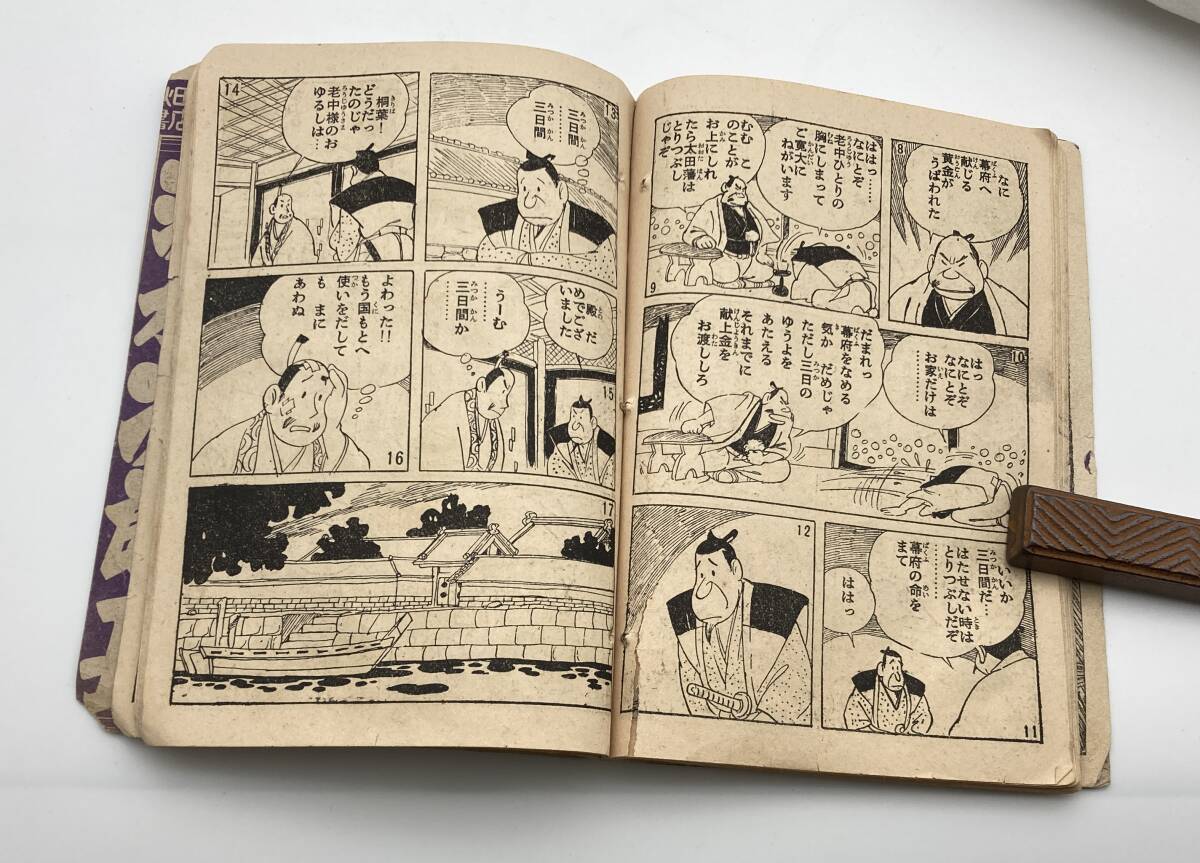 8
なに
幕府へ
献じる
黄金が
うばわれた
ははっ……
なにとぞ
老中ひとりの
胸にしまって
ご寛大に
ねがいます
むむ こ
のことが
お上にしれ
たら太田藩は
とりつぶし
じゃぞ
9
10
はっ
なにとぞ
なにとぞ
お家だけは
………
だまれっ
幕府をなめる
気か だめじゃ
ただし三日の
ゆうよを
あたえる
それまでに
献上金を
お渡ししろ
いいか
三日間だ…
はたせない時は
とりつぶしだぞ
………
幕府の命を
まて
ははっ
11
12
13
三日間
………
三日間
14
桐葉!
どうだっ
たのじゃ
老中様のお
ゆるしは…
15
殿 だ
めでござ
いました
うーむ
………
三日間か
よわった!!
もう国もとへ
使いをだして
も まに
あわぬ
16
17
書店